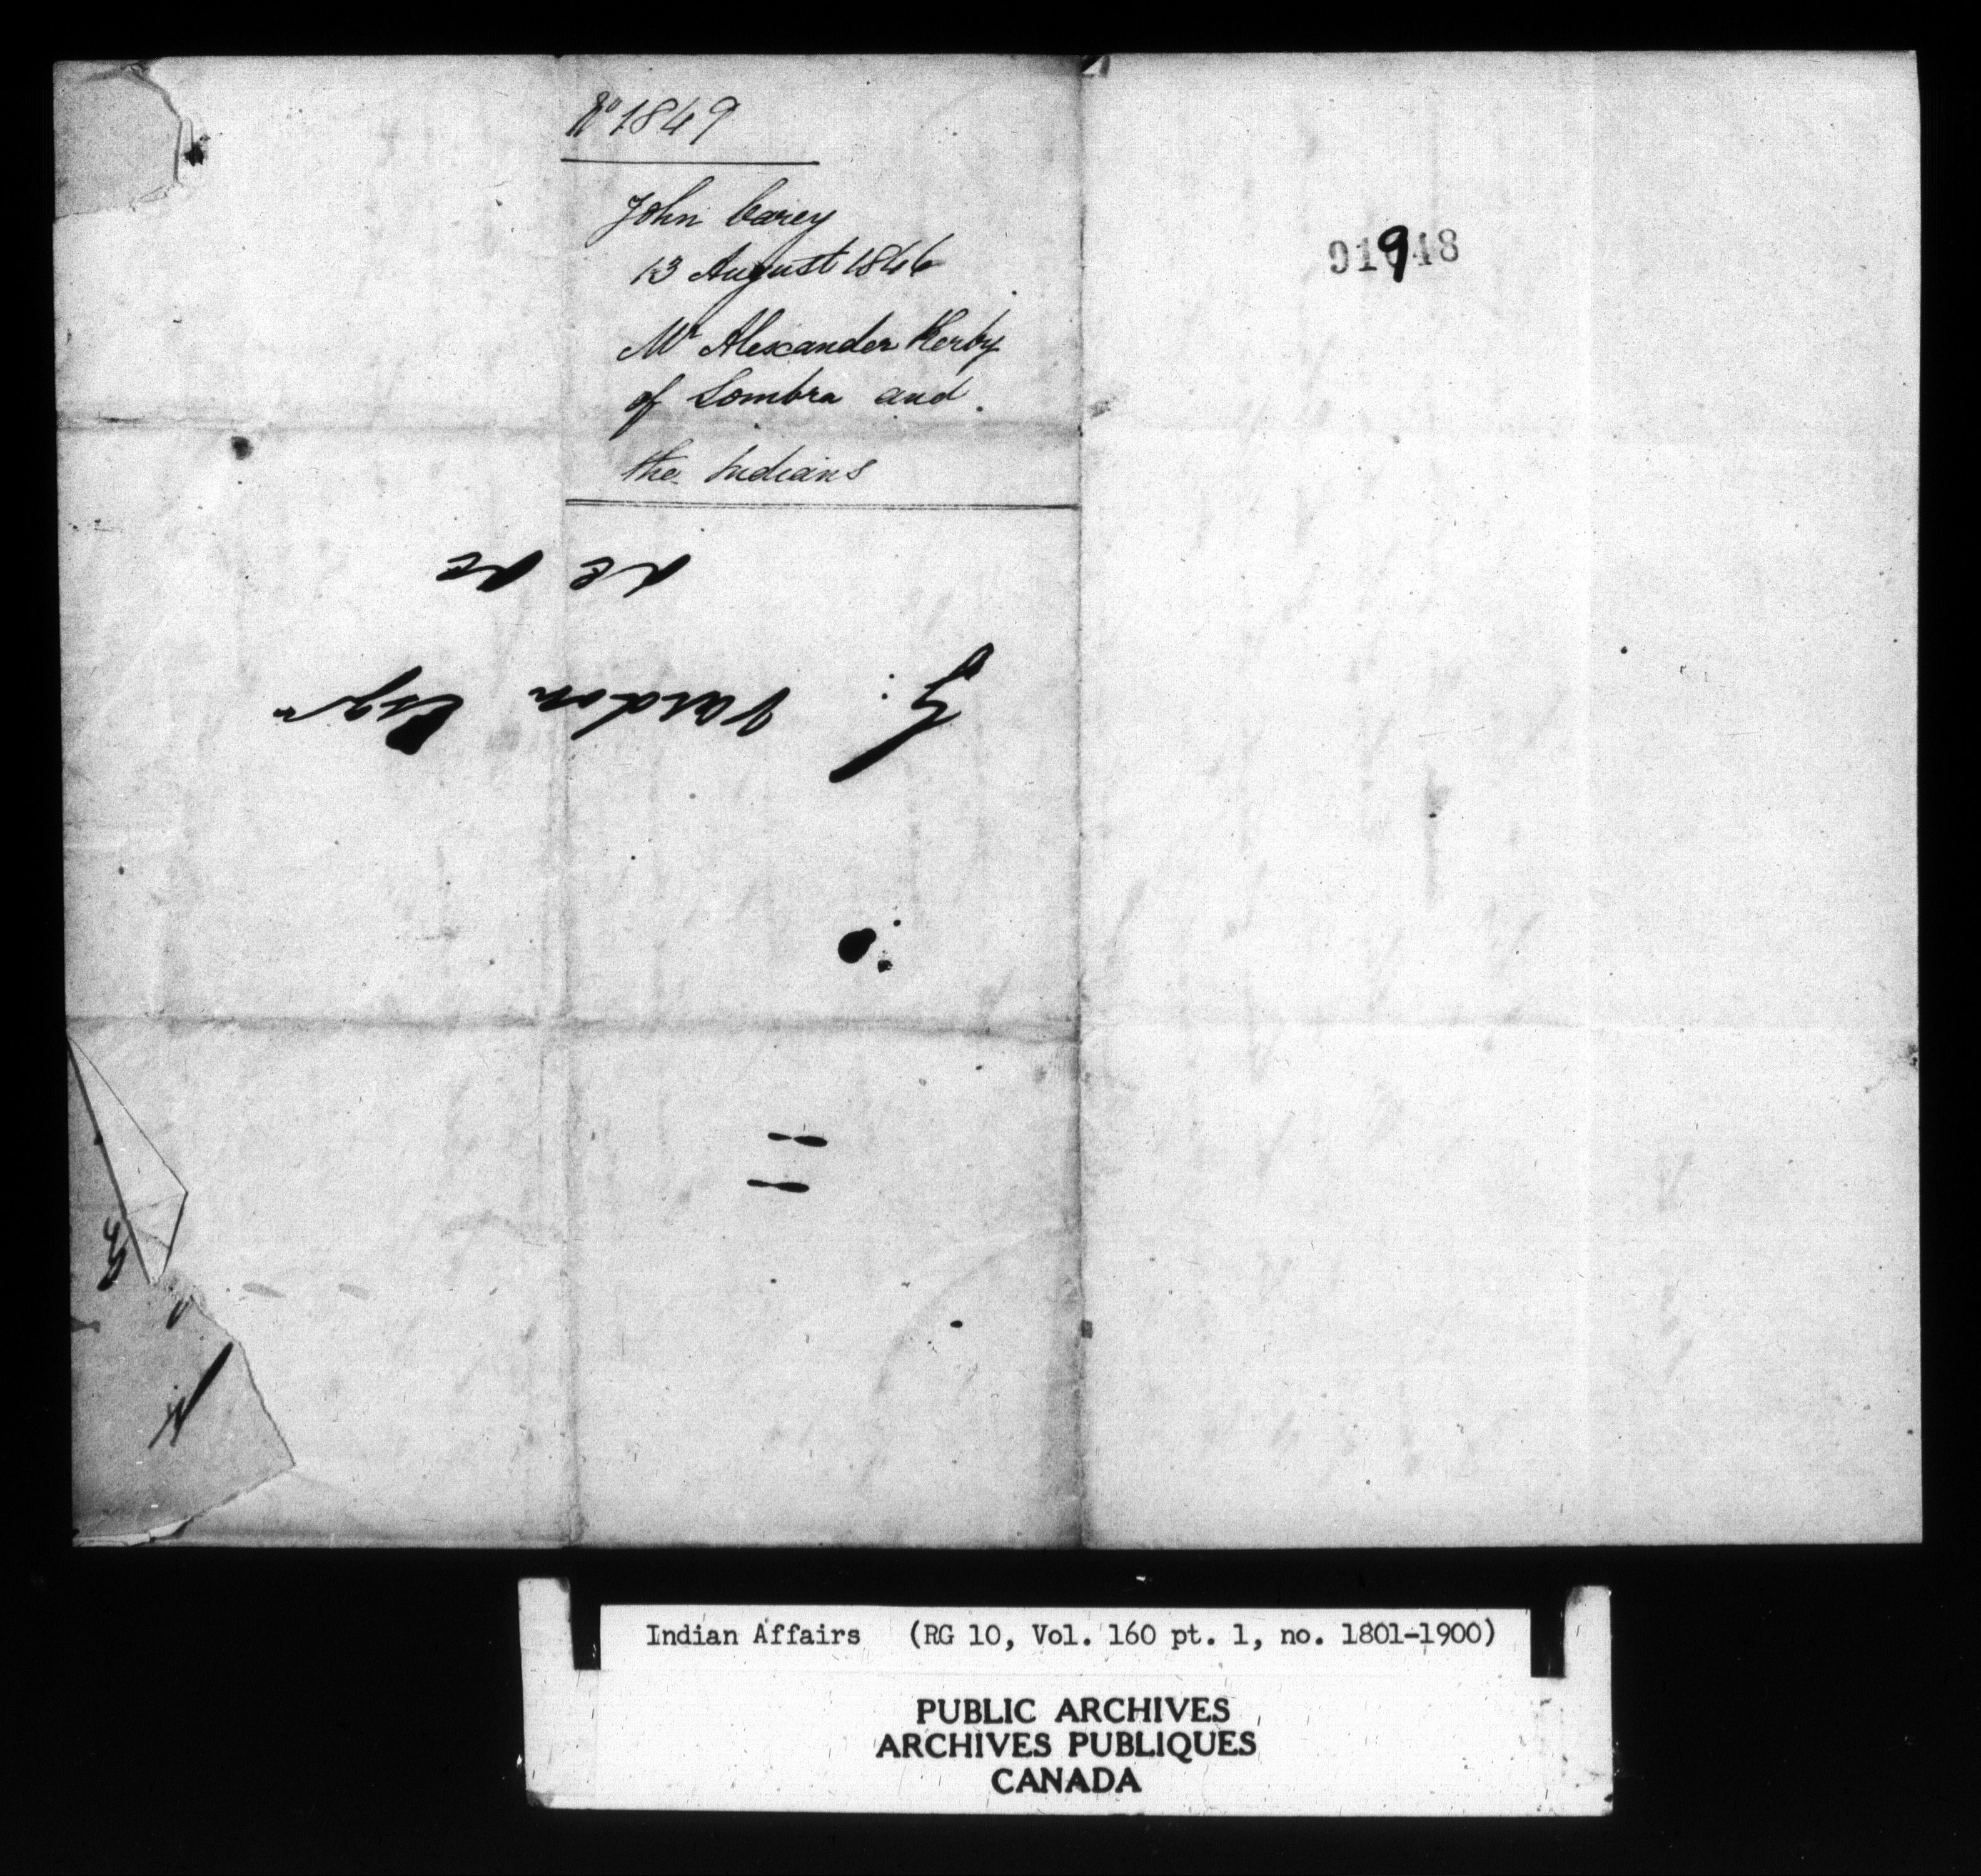 No 1849
John Carey
13 August 1846
Mr Alexander Kerby
of Sombra and
the Indians
&c &c
G: Vardon Esqr
91948
Indian Affairs (RG 10, Vol. 160 pt. 1, no. 1801-1900)
PUBLIC ARCHIVES
ARCHIVES PUBLIQUES
CANADA